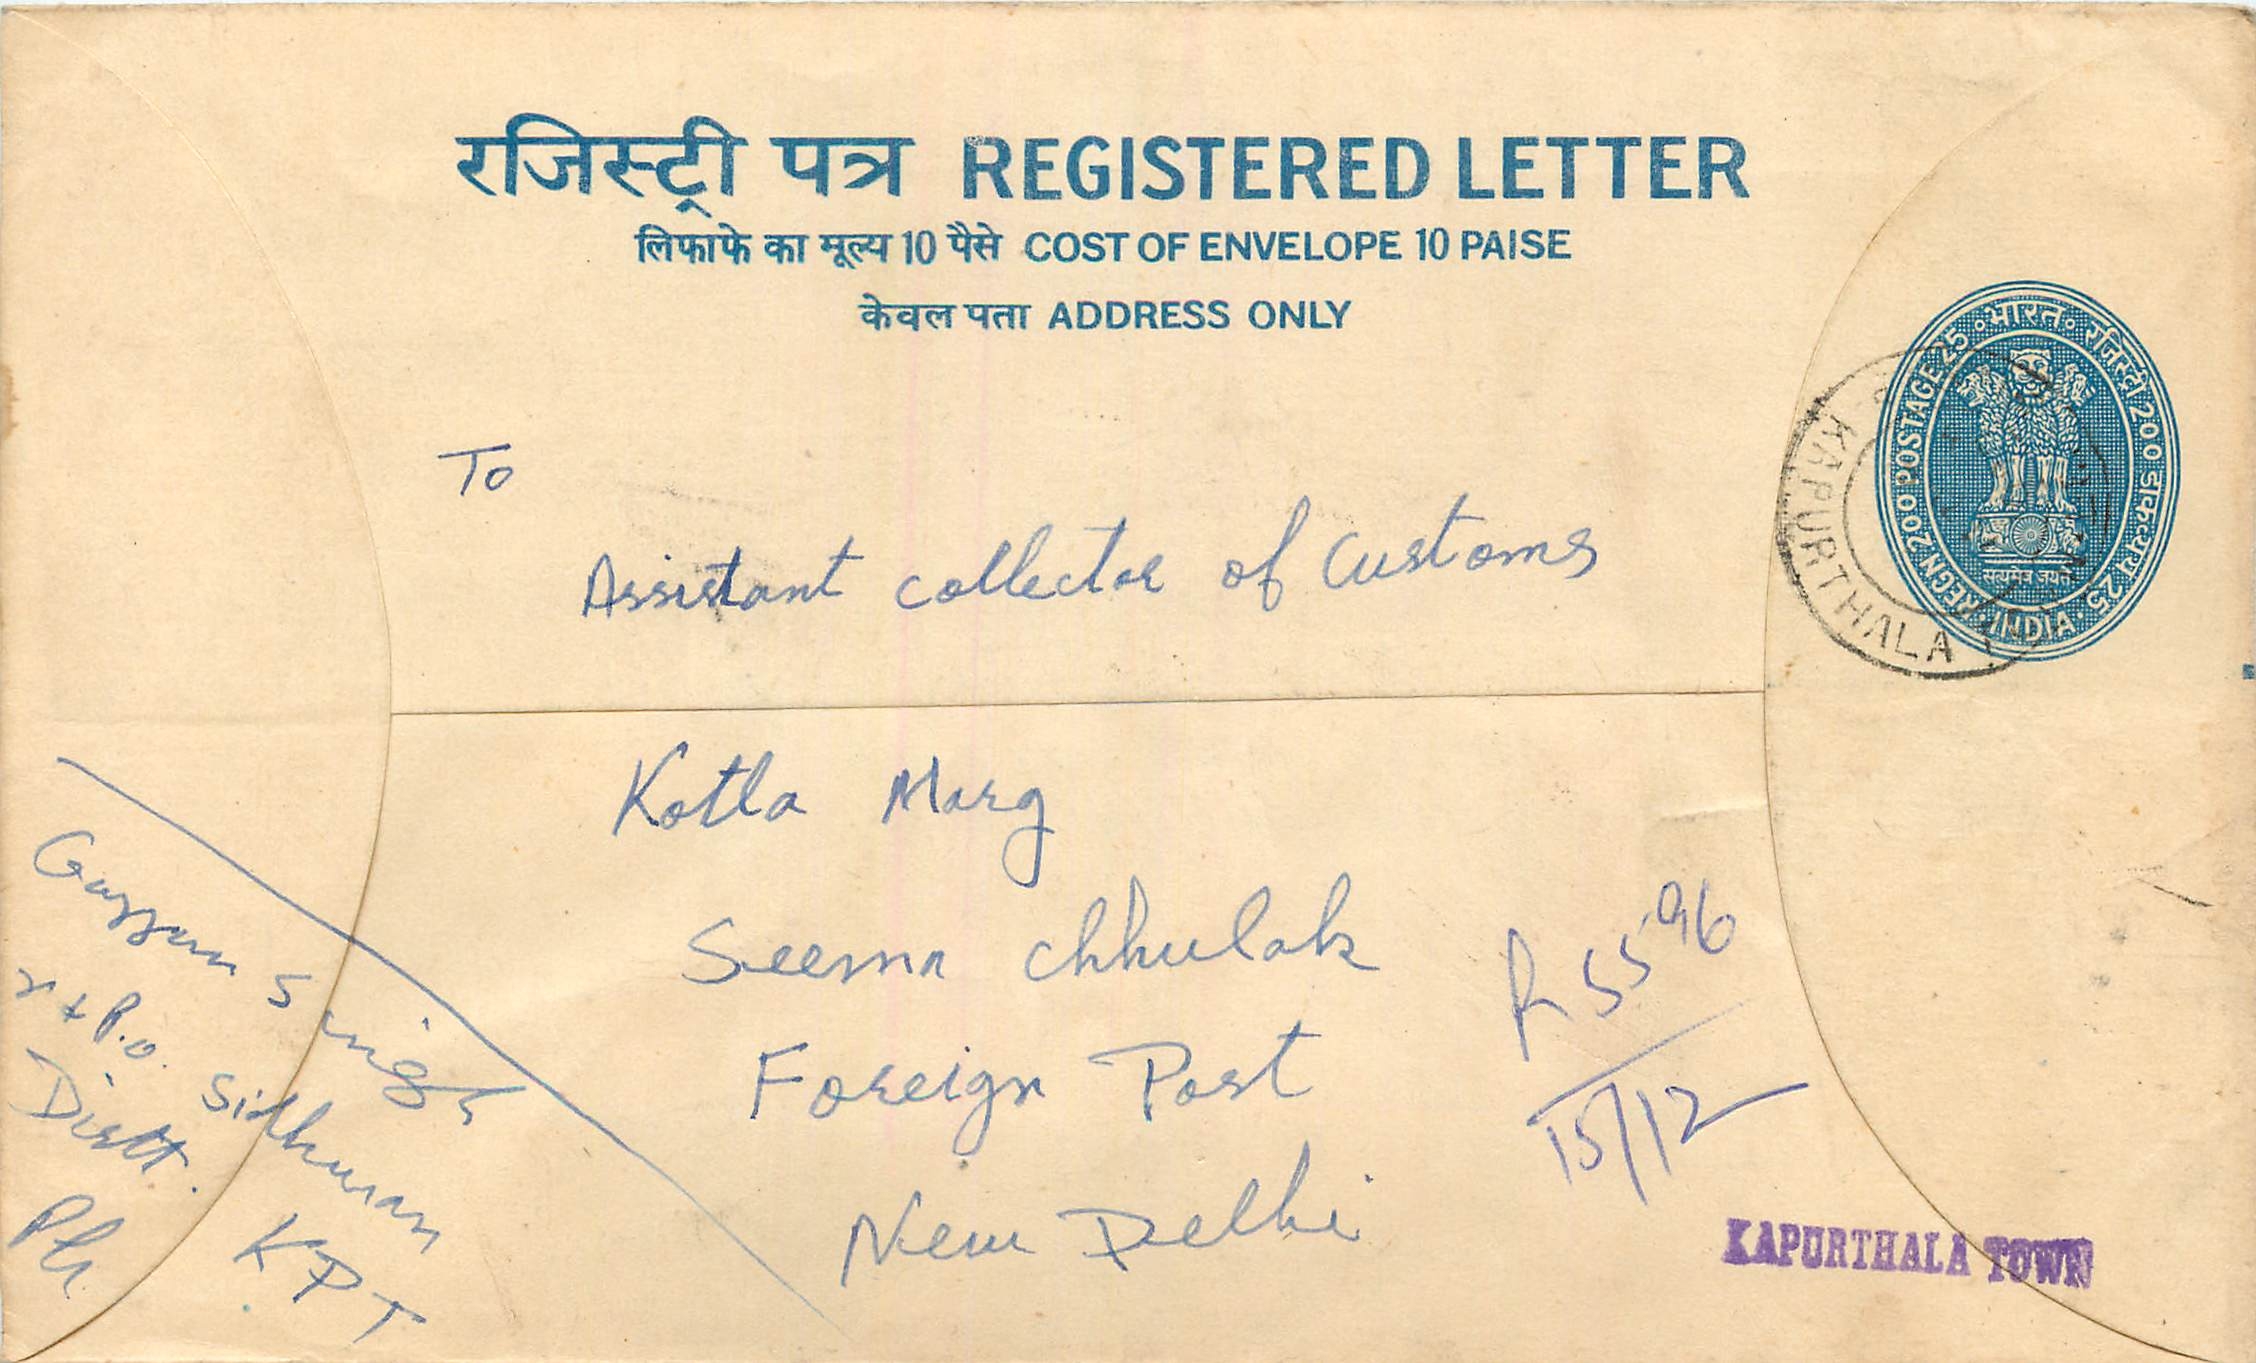 रजिस्ट्री पत्र REGISTERED LETTER
लिफाफे का मूल्य 10 पैसे COST OF ENVELOPE 10 PAISE
केवल पता ADDRESS ONLY
भारत रजिस्ट्री 200 डाकव्यय 25
REGN 200 POSTAGE 25
सत्यमेव जयते
INDIA
KAPURTHALA
To
Assistant Collector of Customs
Kotla Marg
Seema Chhulak
Foreign Post
New Delhi
R 5596
15/12
KAPURTHALA TOWN
Singh
P.O. Sidhwan
Distt. KPT
Pb.